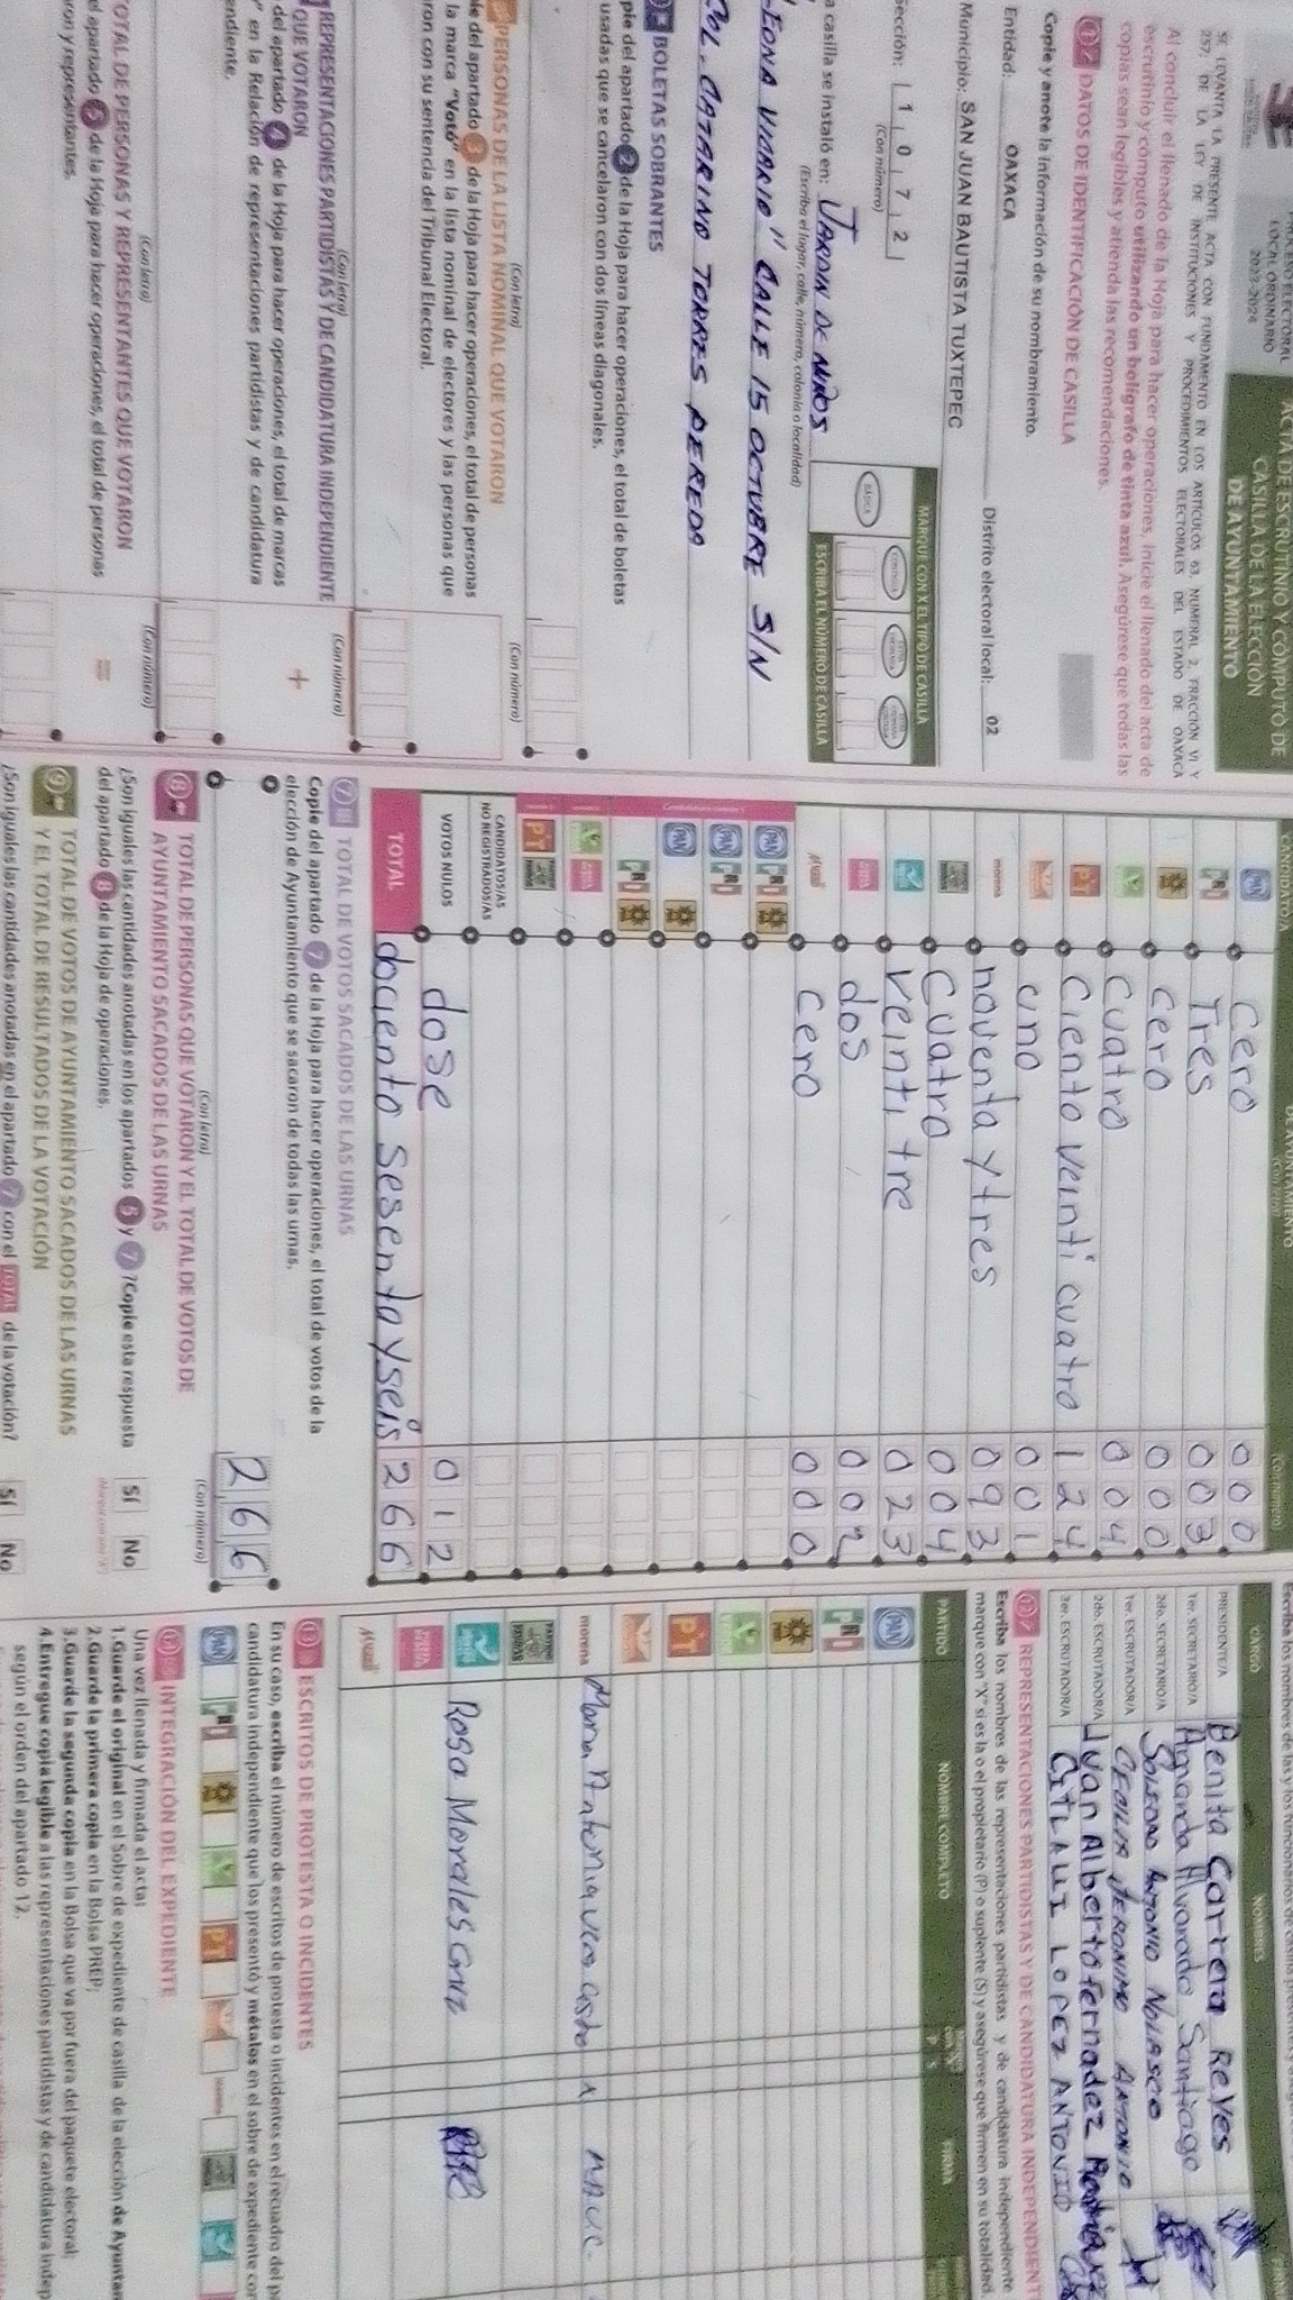 PROCESO ELECTORAL
LOCAL ORDINARIO
2023-2024
ACTA DE ESCRUTINIO Y CÓMPUTO DE
CASILLA DE LA ELECCIÓN
DE AYUNTAMIENTO
SE LEVANTA LA PRESENTE ACTA CON FUNDAMENTO EN LOS ARTÍCULOS 63, NUMERAL 2, FRACCIÓN VI Y
257; DE LA LEY DE INSTITUCIONES Y PROCEDIMIENTOS ELECTORALES DEL ESTADO DE OAXACA
Al concluir el llenado de la Hoja para hacer operaciones, inicie el llenado del acta de
escrutinio y cómputo utilizando un bolígrafo de tinta azul. Asegúrese que todas las
copias sean legibles y atienda las recomendaciones.
1 DATOS DE IDENTIFICACIÓN DE CASILLA
Copie y anote la información de su nombramiento.
Entidad: OAXACA Distrito electoral local: 02
Municipio: SAN JUAN BAUTISTA TUXTEPEC
Sección: 1 0 7 2
(Con número)
MARQUE CON X EL TIPO DE CASILLA
BÁSICA
ESCRIBA EL NÚMERO DE CASILLA
a casilla se instaló en: JARDIN DE NIÑOS
(Escriba el lugar, calle, número, colonia o localidad)
LEONA VICARIO" CALLE 15 OCTUBRE S/N
COL. CATARINO TORRES PEREDA
BOLETAS SOBRANTES
pie del apartado 2 de la Hoja para hacer operaciones, el total de boletas
usadas que se cancelaron con dos líneas diagonales.
(Con letra) (Con número)
PERSONAS DE LA LISTA NOMINAL QUE VOTARON
ie del apartado 3 de la Hoja para hacer operaciones, el total de personas
la marca "Votó" en la lista nominal de electores y las personas que
ron con su sentencia del Tribunal Electoral.
(Con letra) (Con número)
REPRESENTACIONES PARTIDISTAS Y DE CANDIDATURA INDEPENDIENTE
QUE VOTARON
del apartado 4 de la Hoja para hacer operaciones, el total de marcas
" en la Relación de representaciones partidistas y de candidatura
endiente.
+
(Con letra) (Con número)
TOTAL DE PERSONAS Y REPRESENTANTES QUE VOTARON
el apartado 5 de la Hoja para hacer operaciones, el total de personas
ron y representantes.
=
CANDIDATO/A
(Con número)
PAN Cero 000
PRI Tres 003
Cero 000
Cuatro 004
PT Ciento veinti cuatro 124
uno 001
morena noventa y tres 093
Cuatro 004
veinti tre 023
dos 002
Cero 000
PAN PRI
PAN PRI
PAN
PRI
PT
CANDIDATOS/AS
NO REGISTRADOS/AS
VOTOS NULOS dose 012
TOTAL dociento sesenta y seis 266
7 TOTAL DE VOTOS SACADOS DE LAS URNAS
Copie del apartado 7 de la Hoja para hacer operaciones, el total de votos de la
elección de Ayuntamiento que se sacaron de todas las urnas.
266
(Con letra) (Con número)
8 TOTAL DE PERSONAS QUE VOTARON Y EL TOTAL DE VOTOS DE
AYUNTAMIENTO SACADOS DE LAS URNAS
¿Son iguales las cantidades anotadas en los apartados 5 y 7? Copie esta respuesta
del apartado 8 de la Hoja de operaciones.
Sí No
9 TOTAL DE VOTOS DE AYUNTAMIENTO SACADOS DE LAS URNAS
Y EL TOTAL DE RESULTADOS DE LA VOTACIÓN
¿Son iguales las cantidades anotadas en el apartado 7 con el TOTAL de la votación?
Sí No
CARGO NOMBRES
PRESIDENTE/A Benita Carrera Reyes
1er. SECRETARIO/A Amanda Alvarado Santiago
2do. SECRETARIO/A SOLEDAD ANTONIO NOLASCO
1er. ESCRUTADOR/A CECILIA JERONIMO ANTONIO
2do. ESCRUTADOR/A Juan Alberto fernadez
3er. ESCRUTADOR/A CITLALLI LOPEZ ANTONIO
12 REPRESENTACIONES PARTIDISTAS Y DE CANDIDATURA INDEPENDIENT
Escriba los nombres de las representaciones partidistas y de candidatura independiente
marque con "X" si es la o el propietario (P) o suplente (S) y asegúrese que firmen en su totalidad.
PARTIDO NOMBRE COMPLETO P S FIRMA
PAN
PRI
PT
morena Maria Antonia Vera Castro
Rosa Morales Cruz
13 ESCRITOS DE PROTESTA O INCIDENTES
En su caso, escriba el número de escritos de protesta o incidentes en el recuadro del p
candidatura independiente que los presentó y métalos en el sobre de expediente cor
PAN PRI PT morena
14 INTEGRACIÓN DEL EXPEDIENTE
Una vez llenada y firmada el acta:
1.Guarde el original en el Sobre de expediente de casilla de la elección de Ayuntam
2.Guarde la primera copia en la Bolsa PREP;
3.Guarde la segunda copia en la Bolsa que va por fuera del paquete electoral;
4.Entregue copia legible a las representaciones partidistas y de candidatura indep
según el orden del apartado 12.